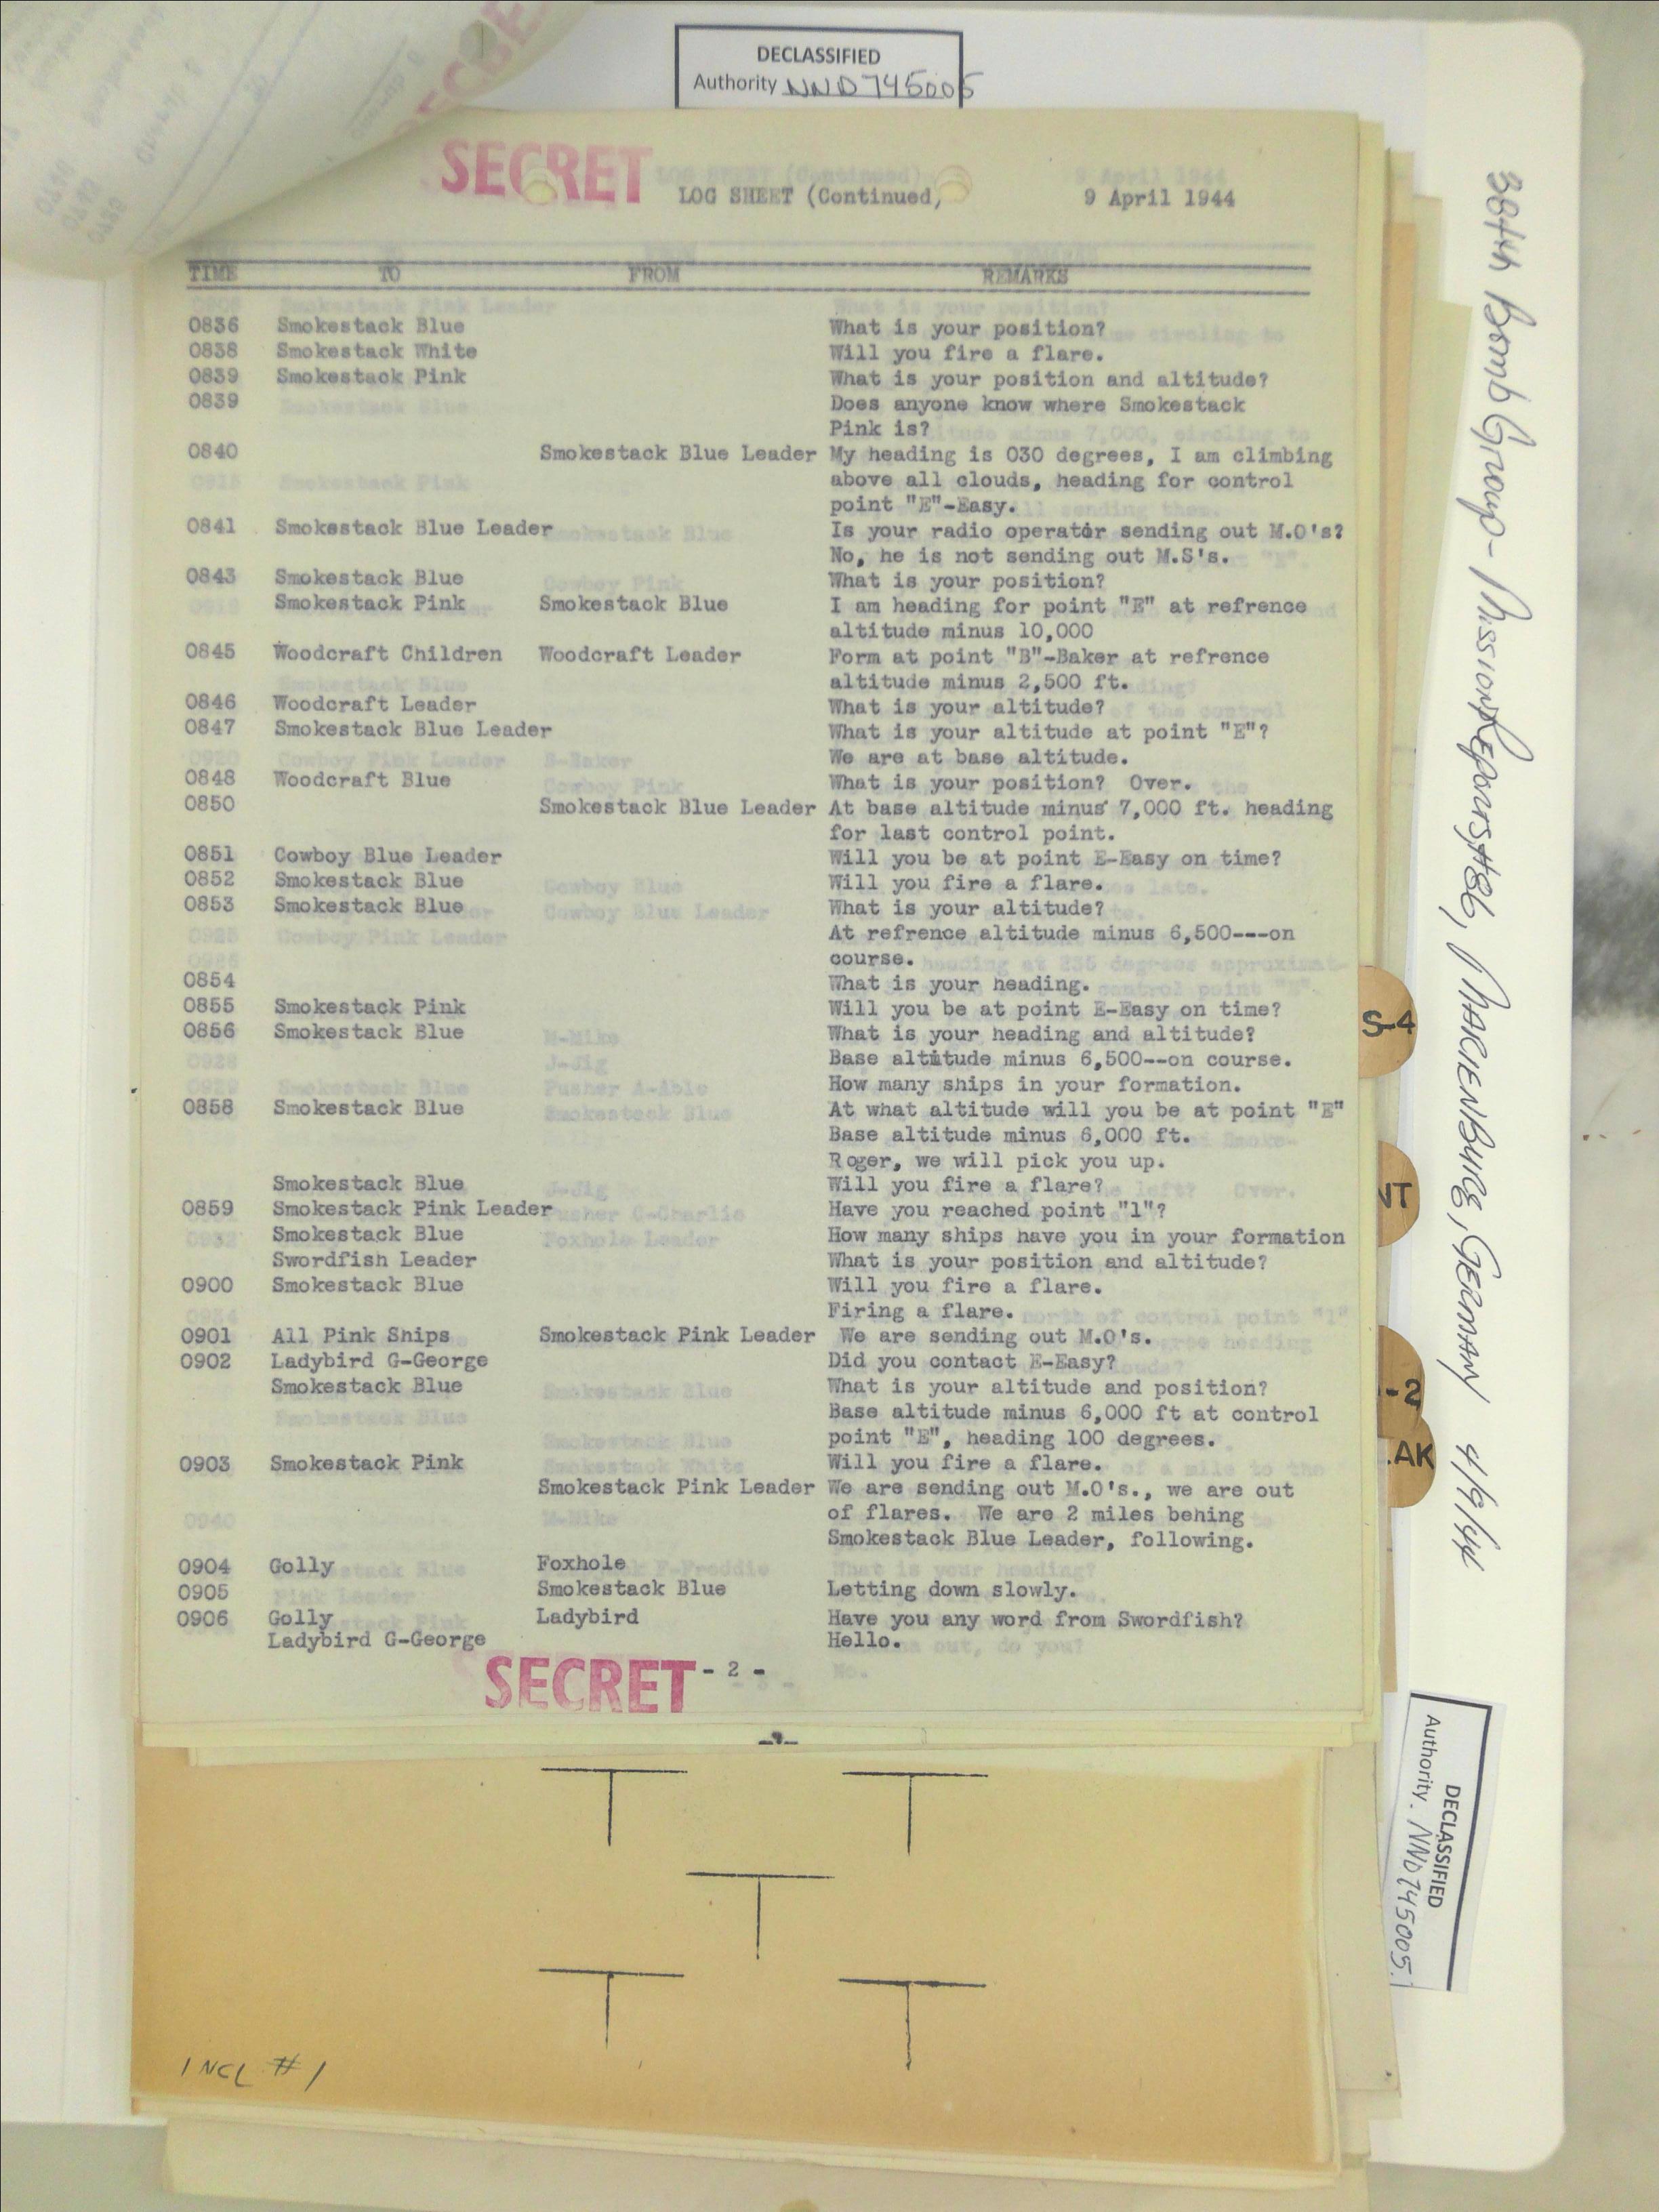 DECLASSIFIED
Authority NND 745005
SECRET
LOG SHEET (Continued) 9 April 1944
TIME TO FROM REMARKS
0836 Smokestack Blue What is your position?
0838 Smokestack White Will you fire a flare.
0839 Smokestack Pink What is your position and altitude?
0839 Does anyone know where Smokestack
Pink is?
0840 Smokestack Blue Leader My heading is 030 degrees, I am climbing
above all clouds, heading for control
point "E"-Easy.
0841 Smokestack Blue Leader Is your radio operator sending out M.O's?
No, he is not sending out M.S's.
0843 Smokestack Blue What is your position?
Smokestack Pink Smokestack Blue I am heading for point "E" at refrence
altitude minus 10,000
0845 Woodcraft Children Woodcraft Leader Form at point "B"-Baker at refrence
altitude minus 2,500 ft.
0846 Woodcraft Leader What is your altitude?
0847 Smokestack Blue Leader What is your altitude at point "E"?
We are at base altitude.
0848 Woodcraft Blue What is your position? Over.
0850 Smokestack Blue Leader At base altitude minus 7,000 ft. heading
for last control point.
0851 Cowboy Blue Leader Will you be at point E-Easy on time?
0852 Smokestack Blue Will you fire a flare.
0853 Smokestack Blue What is your altitude?
At refrence altitude minus 6,500---on
course.
0854 What is your heading.
0855 Smokestack Pink Will you be at point E-Easy on time?
0856 Smokestack Blue What is your heading and altitude?
Base altitude minus 6,500--on course.
How many ships in your formation.
0858 Smokestack Blue At what altitude will you be at point "E"
Base altitude minus 6,000 ft.
Roger, we will pick you up.
Smokestack Blue Will you fire a flare?
0859 Smokestack Pink Leader Have you reached point "1"?
Smokestack Blue How many ships have you in your formation
Swordfish Leader What is your position and altitude?
0900 Smokestack Blue Will you fire a flare.
Firing a flare.
0901 All Pink Ships Smokestack Pink Leader We are sending out M.O's.
0902 Ladybird G-George Did you contact E-Easy?
Smokestack Blue What is your altitude and position?
Base altitude minus 6,000 ft at control
point "E", heading 100 degrees.
0903 Smokestack Pink Will you fire a flare.
Smokestack Pink Leader We are sending out M.O's., we are out
of flares. We are 2 miles behing
Smokestack Blue Leader, following.
0904 Golly Foxhole
0905 Smokestack Blue Letting down slowly.
0906 Golly Ladybird Have you any word from Swordfish?
Ladybird G-George Hello.
SECRET - 2 -
INCL #1
S-4
NT
-2
AK
384th Bomb Group - Mission Reports #86, MARIENBURG, GERMANY 4/9/44
DECLASSIFIED
Authority. NND 745005.